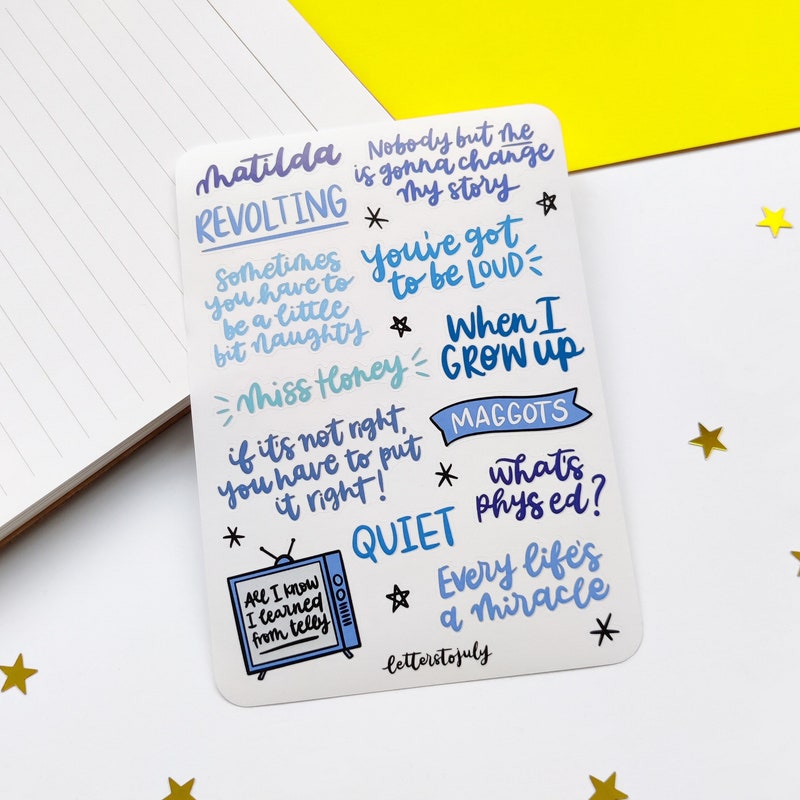 Matilda
Nobody but me
is gonna change
my story
REVOLTING
You've got
to be LOUD
Sometimes
you have to
be a little
bit Naughty
When I
GROW up
Miss Honey
MAGGOTS
if it's not right,
you have to put
it right!
what's
phys ed?
QUIET
Every life's
a miracle
All I know
I learned
from telly
letterstojuly